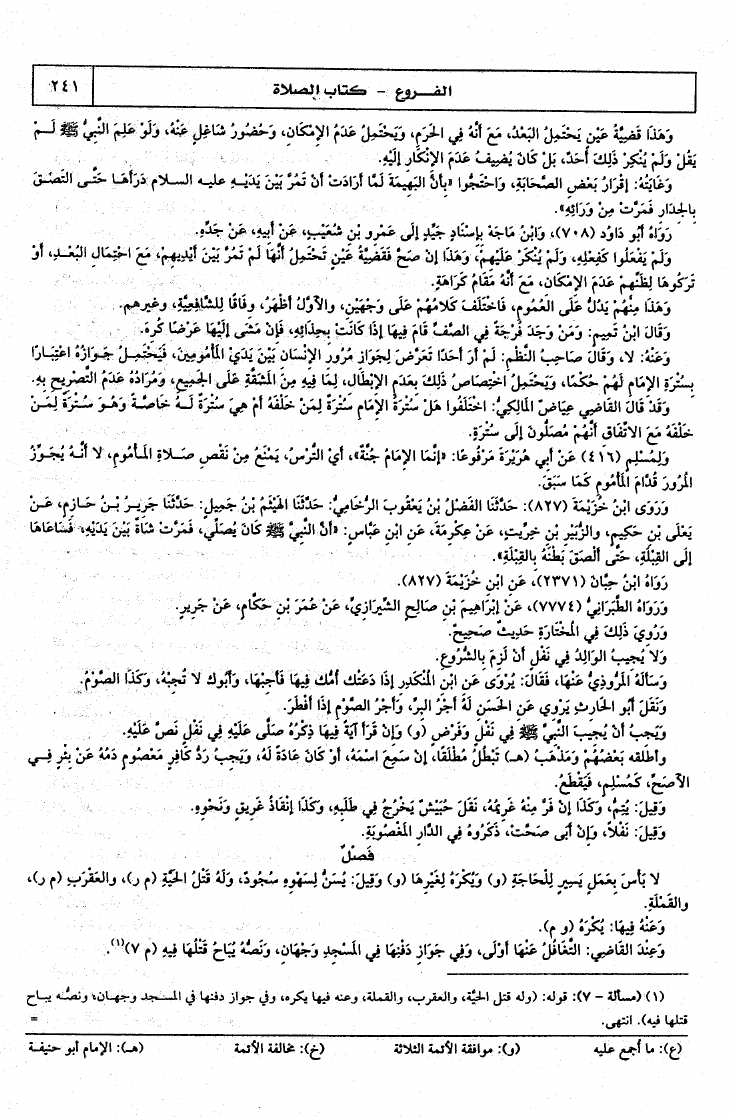 الفـــروع - كتاب الصلاة
٢٤١
وَهَذَا قَضِيَّةُ عَيْنٍ يَحْتَمِلُ الْبَعْدُ، مَعَ أَنَّهُ فِي الْحَرَمِ، وَيَحْتَمِلُ عَدَمُ الإِمْكَانِ، وَحُضُورُ شَاغِلٍ عَنْهُ، وَلَوْ عَلِمَ النَّبِيُّ ﷺ لَـمْ
يَقُلْ وَلَمْ يُنْكِرْ ذَلِكَ أَحَدٌ، بَلْ كَانَ يُضِيفُ عَدَمَ الإِنْكَارِ إِلَيْهِ.
وَغَايَتُهُ: إِقْرَارُ بَعْضِ الصَّحَابَةِ، وَاحْتَجُّوا «بِأَنَّ الْبَهِيمَةَ لَمَّا أَرَادَتْ أَنْ تَمُرَّ بَيْنَ يَدَيْـهِ عليـه السـلام دَرَأَهَـا حَتَّـى الْتَصَـقَ
بِالْجِدَارِ فَمَرَّتْ مِنْ وَرَائِهِ».
رَوَاهُ أَبُو دَاوُد (٧٠٨)، وَابْنُ مَاجَهْ بِإِسْنَادٍ جَيِّدٍ إِلَى عَمْرِو بْنِ شُعَيْبٍ، عَنْ أَبِيهِ، عَنْ جَدِّهِ.
وَلَمْ يَفْعَلُوا كَفِعْلِهِ، وَلَمْ يُنْكَرْ عَلَيْهِمْ، وَهَذَا إِنْ صَحَّ فَقَضِيَّةُ عَيْنٍ تَحْتَمِلُ أَنَّهَا لَمْ تَمُرَّ بَيْنَ أَيْدِيهِمْ، مَعَ احْتِمَالِ الْبُعْـدِ، أَوْ
تَرَكُوهَا لِظَنِّهِمْ عَدَمَ الإِمْكَانِ، مَعَ أَنَّهُ مَقَامُ كَرَاهَةٍ.
وَهَذَا مِنْهُمْ يَدُلُّ عَلَى الْعُمُومِ، فَاخْتَلَفَ كَلامُهُمْ عَلَى وَجْهَيْنِ، وَالأَوَّلُ أَظْهَرُ، وِفَاقًا لِلشَّافِعِيَّةِ، وَغَيْرِهِمْ.
وَقَالَ ابْنُ تَمِيمٍ: وَمَنْ وَجَدَ فُرْجَةً فِي الصَّفِّ قَامَ فِيهَا إِذَا كَانَتْ بِحِذَائِهِ، فَإِنْ مَشَى إِلَيْهَا عَرْضًا كُرِهَ.
وَعَنْهُ: لا، وَقَالَ صَاحِبُ النَّظْمِ: لَمْ أَرَ أَحَدًا تَعَرَّضَ لِجَوَازِ مُرُورِ الإِنْسَانِ بَيْنَ يَدَيْ الْمَأْمُومِينَ، فَيَحْتَمِـلُ جَـوَازُهُ اعْتِبَـارًا
بِسُتْرَةِ الإِمَامِ لَهُمْ حُكْمًا، وَيَحْتَمِلُ اخْتِصَاصُ ذَلِكَ بِعَدَمِ الإِبْطَالِ، لِمَا فِيهِ مِنَ الْمَشَقَّةِ عَلَى الْجَمِيعِ، وَمُرَادُهُ عَدَمُ التَّصْرِيحِ بِهِ.
وَقَدْ قَالَ الْقَاضِي عِيَاضٌ الْمَالِكِيُّ: اخْتَلَفُوا هَلْ سُتْرَةُ الإِمَامِ سُتْرَةٌ لِمَنْ خَلْفَهُ أَمْ هِيَ سُتْرَةٌ لَـهُ خَاصَّـةً وَهُـوَ سُـتْرَةٌ لِمَـنْ
خَلْفَهُ مَعَ الاتِّفَاقِ أَنَّهُمْ مُصَلُّونَ إِلَى سُتْرَةٍ.
وَلِمُسْلِمٍ (٤١٦) عَنْ أَبِي هُرَيْرَةَ مَرْفُوعًا: «إِنَّمَا الإِمَامُ جُنَّةٌ»، أَيْ التُّرْسُ، يَمْنَعُ مِنْ نَقْصِ صَـلاةِ الْمَـأْمُومِ، لا أَنَّـهُ يُجَـوِّزُ
الْمُرُورَ قُدَّامَ الْمَأْمُومِ كَمَا سَبَقَ.
وَرَوَى ابْنُ خُزَيْمَةَ (٨٢٧): حَدَّثَنَا الْفَضْلُ بْنُ يَعْقُوبَ الرُّخَامِيُّ: حَدَّثَنَا الْهَيْثَمُ بْنُ جَمِيلٍ: حَدَّثَنَا جَرِيـرُ بْـنُ حَـازِمٍ، عَـنْ
يَعْلَى بْنِ حَكِيمٍ، وَالزُّبَيْرِ بْنِ خِرِّيتٍ، عَنْ عِكْرِمَةَ، عَنِ ابْنِ عَبَّاسٍ: «أَنَّ النَّبِيَّ ﷺ كَانَ يُصَلِّي، فَمَرَّتْ شَاةٌ بَيْنَ يَدَيْهِ، فَسَاعَاهَا
إِلَى الْقِبْلَةِ، حَتَّى أَلْصَقَ بَطْنَهُ بِالْقِبْلَةِ».
رَوَاهُ ابْنُ حِبَّانَ (٢٣٧١)، عَنِ ابْنِ خُزَيْمَةَ (٨٢٧).
وَرَوَاهُ الطَّبَرَانِيُّ (٧٧٧٤)، عَنْ إِبْرَاهِيمَ بْنِ صَالِحٍ الشِّيرَازِيِّ، عَنْ عُمَرَ بْنِ حَكَّامٍ، عَنْ جَرِيرٍ.
وَرُوِيَ ذَلِكَ فِي الْمُخْتَارَةِ حَدِيثٌ صَحِيحٌ.
وَلا يُجِيبُ الْوَالِدُ فِي نَفْلٍ أَنْ لَزِمَ بِالشُّرُوعِ.
وَسَأَلَهُ الْمَرُّوذِيُّ عَنْهَا، فَقَالَ: يُرْوَى عَنِ ابْنِ الْمُنْكَدِرِ إِذَا دَعَتْكَ أُمُّكَ فِيهَا فَأَجِبْهَا، وَأَبُوكَ لا تُجِبْهُ، وَكَذَا الصَّوْمُ.
وَنَقَلَ أَبُو الْحَارِثِ يَرْوِي عَنِ الْحَسَنِ لَهُ أَجْرُ الْبِرِّ، وَأَجْرُ الصَّوْمِ إِذَا أَفْطَرَ.
وَيَجِبُ أَنْ يُجِيبَ النَّبِيَّ ﷺ فِي نَفْلٍ وَفَرْضٍ (و) وَإِنْ قَرَأَ آيَةً فِيهَا ذِكْرُهُ صَلَّى عَلَيْهِ فِي نَفْلٍ نَصَّ عَلَيْهِ.
وأطلقه بَعْضُهُمْ وَمَذْهَبُ (هـ) تَبْطُلُ مُطْلَقًا، إِنْ سَمِعَ اسْمَهُ، أَوْ كَانَ عَادَةً لَهُ، وَيَجِبُ رَدُّ كَافِرٍ مَعْصُومٍ دَمُهُ عَنْ بِئْرٍ فِــي
الأَصَحِّ، كَمُسْلِمٍ، فَيَقْطَعُ.
وَقِيلَ: يُتِمُّ، وَكَذَا إِنْ فَرَّ مِنْهُ غَرِيمُهُ، نَقَلَ حُبَيْشٌ يَخْرُجُ فِي طَلَبِهِ، وَكَذَا إِنْقَاذُ غَرِيقٍ وَنَحْوِهِ.
وَقِيلَ: نَفْلاً، وَإِنْ أَبَى صَحَّتْ، ذَكَرُوهُ فِي الدَّارِ الْمَغْصُوبَةِ.
فَصْلٌ
لا بَأْسَ بِعَمَلٍ يَسِيرٍ لِلْحَاجَةِ (و) وَيُكْرَهُ لِغَيْرِهَا (و) وَقِيلَ: يُسَنُّ لِسَهْوِهِ سُجُودٌ، وَلَهُ قَتْلُ الْحَيَّةِ (م ر)، والعَقْرَبِ (م ر)،
والقَمْلَةِ.
وَعَنْهُ فِيهَا: يُكْرَهُ (و م).
وَعِنْدَ الْقَاضِي: التَّغَافُلُ عَنْهَا أَوْلَى، وَفِي جَوَازِ دَفْنِهَا فِي الْمَسْجِدِ وَجْهَانِ، وَنَصُّهُ يُبَاحُ قَتْلُهَا فِيهِ (م ٧)(١).
(١) (مسألة - ٧): قوله: (وله قتل الحيَّة، والعقرب، والقملة، وعنه فيها يكره، وفي جواز دفنها في المسـجد وجهـان، ونصُّـه يبـاح
قتلها فيه). انتهى. =
(ع): ما أجمع عليه (و): موافقة الأئمة الثلاثة (خ): مخالفة الأئمة (هـ): الإمام أبو حنيفـة